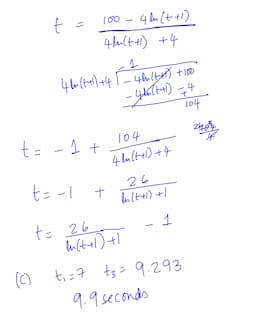 t = 100 - 4ln(t+1) / 4ln(t+1) + 4
-1
4ln(t+1)+4 | - 4ln(t+1) + 100
- 4ln(t+1) - 4
104
t = - 1 + 104 / 4ln(t+1)+4
t = -1 + 26 / ln(t+1)+1
t = 26 / ln(t+1)+1 - 1
(c) t₁=7 t₃ = 9.293
9.9 seconds